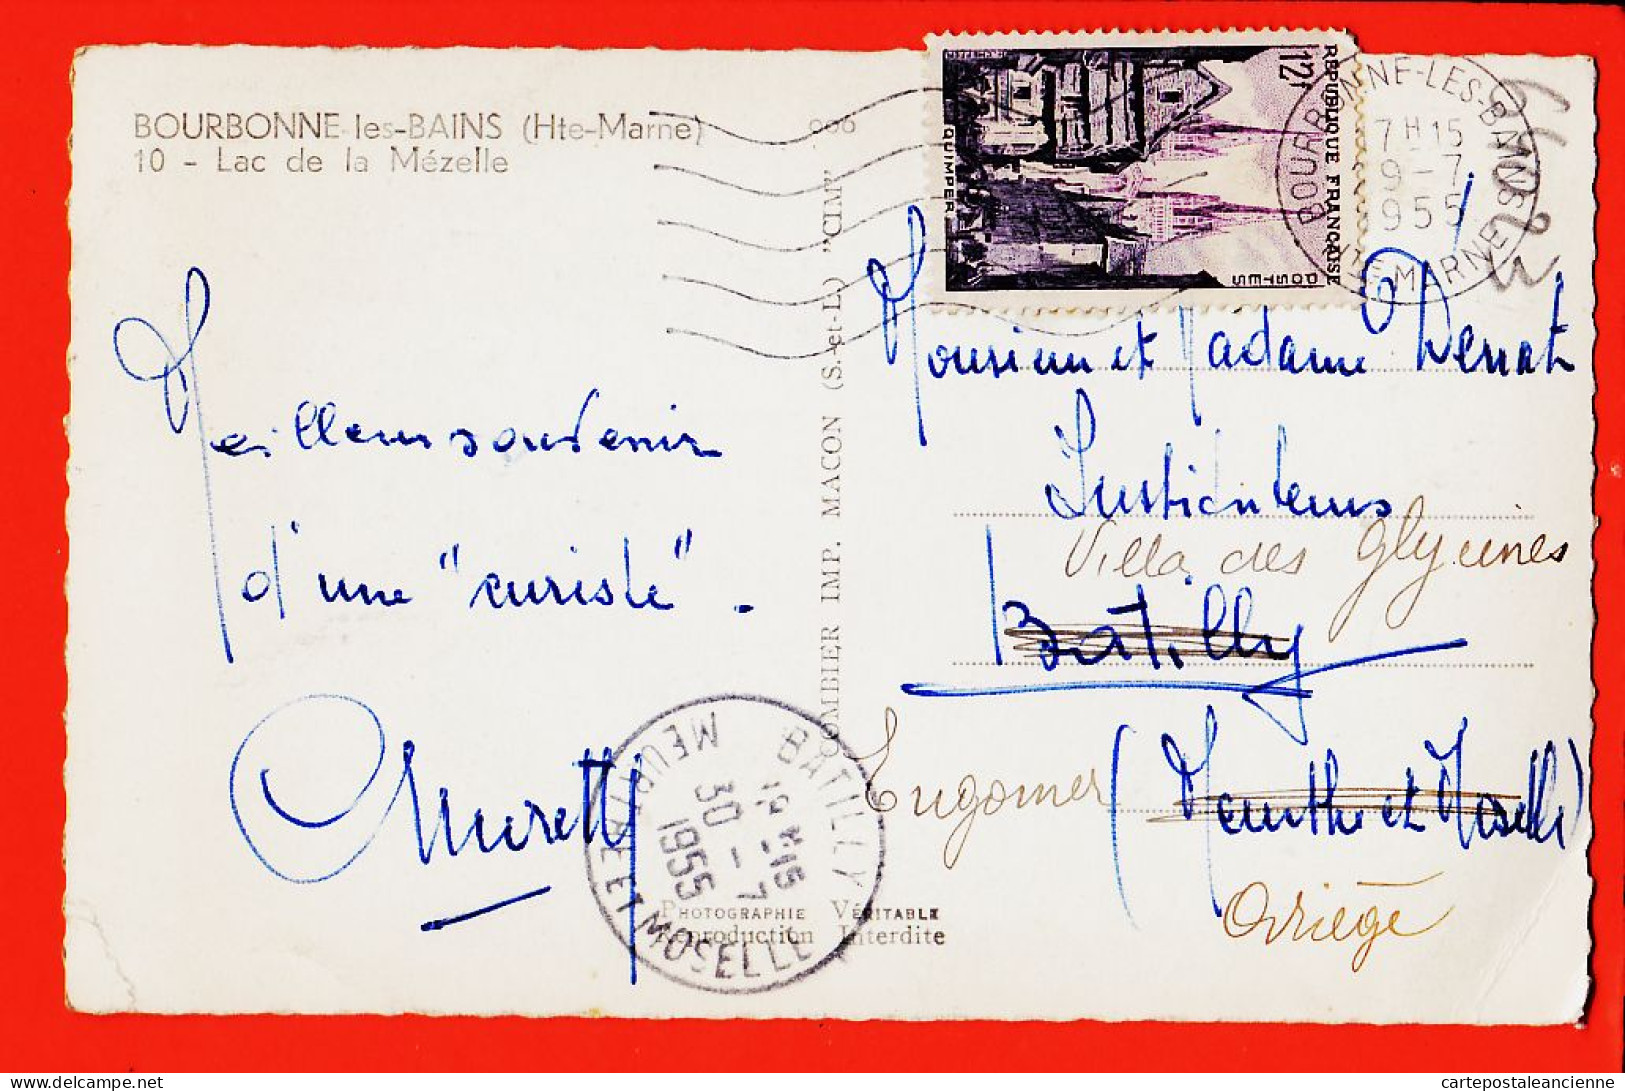 BOURBONNE-les-BAINS (Hte-Marne)
10 - Lac de la Mézelle
Meilleur souvenir
d'une "curiste".
COMBIER IMP. MACON (S.-et-L.) "CIM"
PHOTOGRAPHIE VÉRITABLE
Reproduction Interdite
BATILLY
MEURTHE ET MOSELLE
30 - 7
1955
12f
RÉPUBLIQUE FRANÇAISE
POSTES
QUIMPER
BOURBONNE-LES-BAINS
7H15
9-7
1955
HTE MARNE
Monsieur et Madame
Instituteurs
Villa des Glycines
Batilly
(Meurthe et Moselle)
Engomer
Ariège
cartepostaleancienne.com